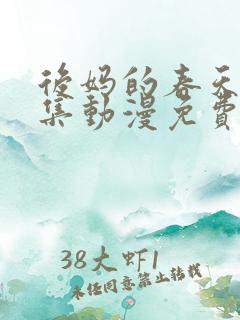 后妈的春天
集动漫免费
38大虾1
未经同意禁止转载